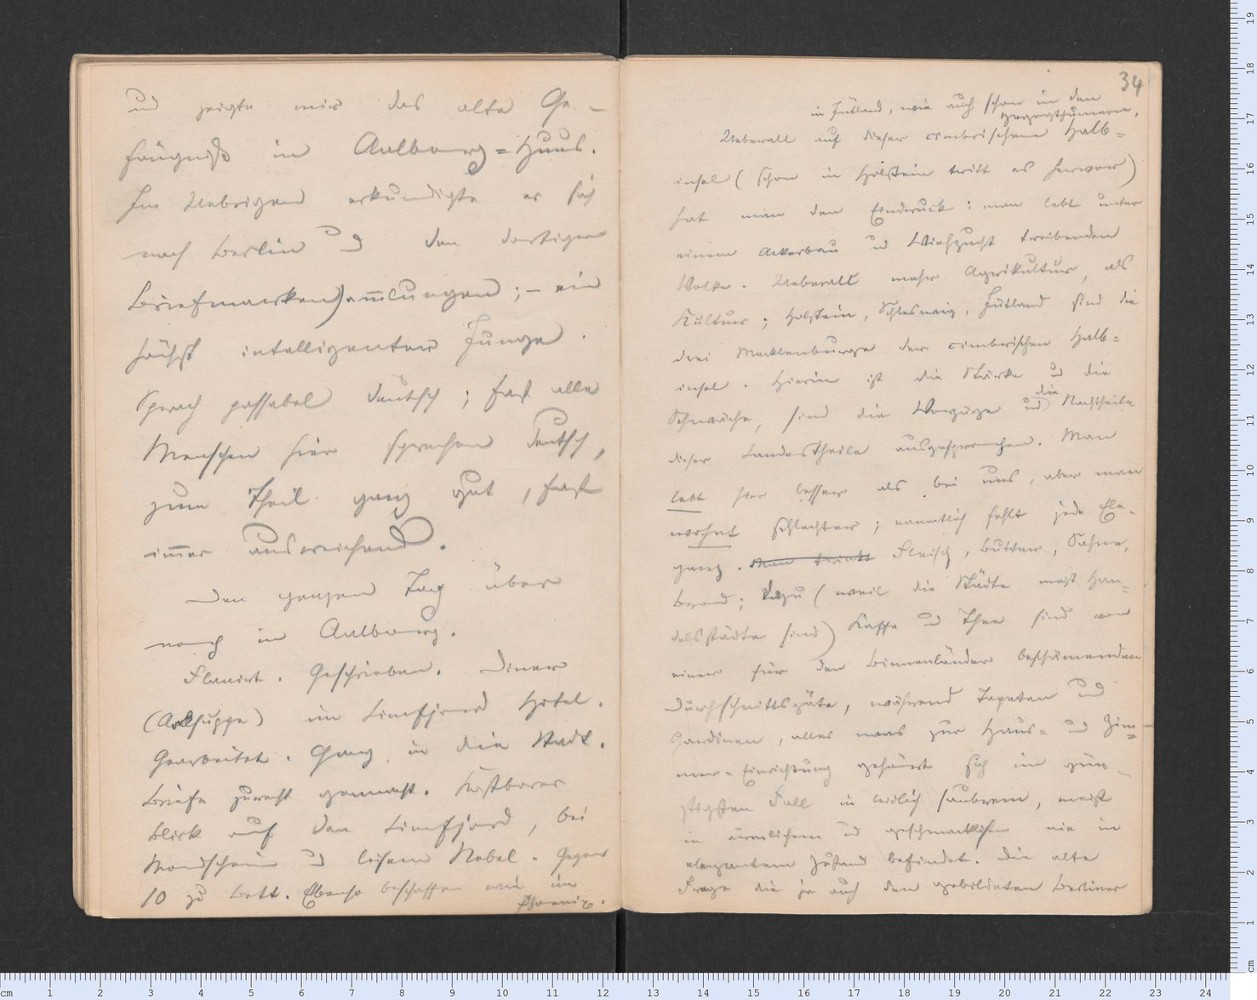 und zeigte mir das alte Ge-
fängniß in Aalborg-Huus.
Im Uebrigen erkundigte er sich
nach Berlin und den dortigen
Briefmarkensammlungen; – ein
höchst intelligenter Junge.
Sprach passabel deutsch; fast alle
Menschen hier sprechen deutsch,
zum Theil ganz gut, fast
immer ausreichend.
Den ganzen Tag über
noch in Aalborg.
Flanirt. Geschrieben. Diner
(Aalsuppe) im Limfjord Hotel.
Gearbeitet. Gang in die Stadt.
Briefe zurecht gemacht. Kostbarer
Blick auf den Limfjord, bei
Mondschein und leisem Nebel. Gegen
10 zu Bett. Ebenso beschaffen wie im
Phoenix.
34
in Jütland, wie auch schon in den
Herzogthümern,
Ueberall auf dieser cimbrischen Halb=
insel (schon in Holstein tritt es hervor)
hat man den Eindruck: man lebt unter
einem Ackerbau und Viehzucht treibenden
Volke. Ueberall mehr Agrikultur, als
Kultur; Holstein, Schleswig, Jütland sind die
drei Mecklenburgs der cimbrischen Halb=
insel. Hierin ist die Stärke und die
Schwäche, sind die Vorzüge und die Nachtheile
dieser Landestheile ausgesprochen. Man
lebt hier besser als bei uns, aber man
wohnt schlechter; namentlich fehlt jede Ele-
ganz. Man trinkt Fleisch, Butter, Sahne,
Brod; dazu (weil die Städte meist Han=
delsstädte sind) Kaffe und Thee sind von
einer für den Binnenländer beschämenden
Durchschnittsgüte, während Tapeten und
Gardinen, alles was zur Haus= und Zim=
mer-Einrichtung gehört sich im gün-
stigsten Fall in leidlich sauberem, meist
in ärmlichem und geschmacklosen nie in
elegantem Zustand befindet. Die alte
Frage die ja auch den gebildeten Berliner